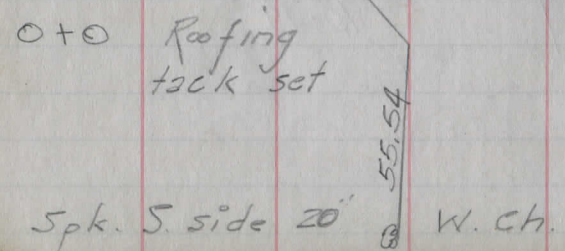 0+0 Roofing
tack set
55.54
Spk. S. side 20" W. Ch.